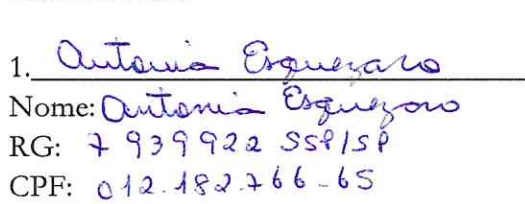 1. Antonia Esquezaro
Nome: Antonia Esquezaro
RG: 7 939922 SSP/SP
CPF: 012.182.766-65